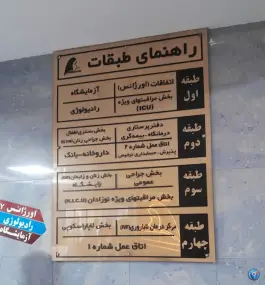 راهنمای طبقات
طبقه اول
اتفاقات (اورژانس)
بخش مراقبتهای ویژه (ICU)
آزمایشگاه
رادیولوژی
طبقه دوم
دفتر پرستاری
درمانگاه - بیمه‌گری
اتاق عمل شماره ۲
پذیرش - حسابداری ترخیص
بخش بستری اطفال
بخش جراحی زنان
داروخانه - بانک
طبقه سوم
بخش جراحی عمومی
بخش زنان و زایمان
زایشگاه
بخش مراقبتهای ویژه نوزادان (N.I.C.U)
طبقه چهارم
مرکز درمان ناباروری (IVF)
بخش لاپاراسکوپی
اتاق عمل شماره ۱
اورژانس
رادیولوژی
آزمایشگاه